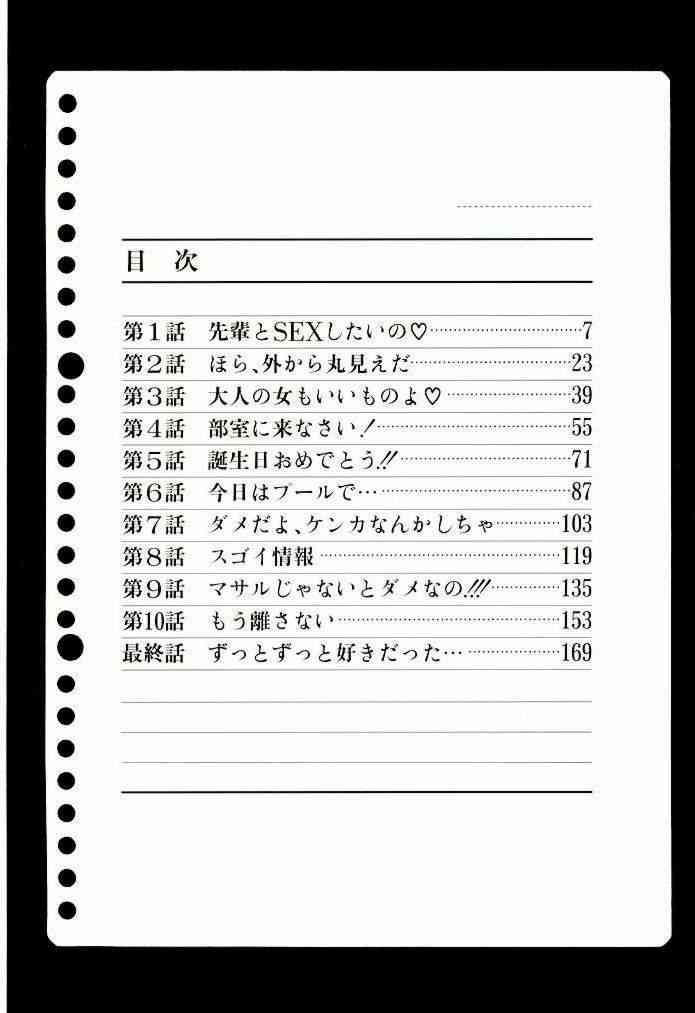 目次
第1話 先輩とSEXしたいの♡……………………………7
第2話 ほら、外から丸見えだ……………………………23
第3話 大人の女もいいものよ♡………………………39
第4話 部室に来なさい！…………………………………55
第5話 誕生日おめでとう!!………………………………71
第6話 今日はプールで……………………………………87
第7話 ダメだよ、ケンカなんかしちゃ……………103
第8話 スゴイ情報…………………………………………119
第9話 マサルじゃないとダメなの!!!………………135
第10話 もう離さない……………………………………153
最終話 ずっとずっと好きだった………………………169